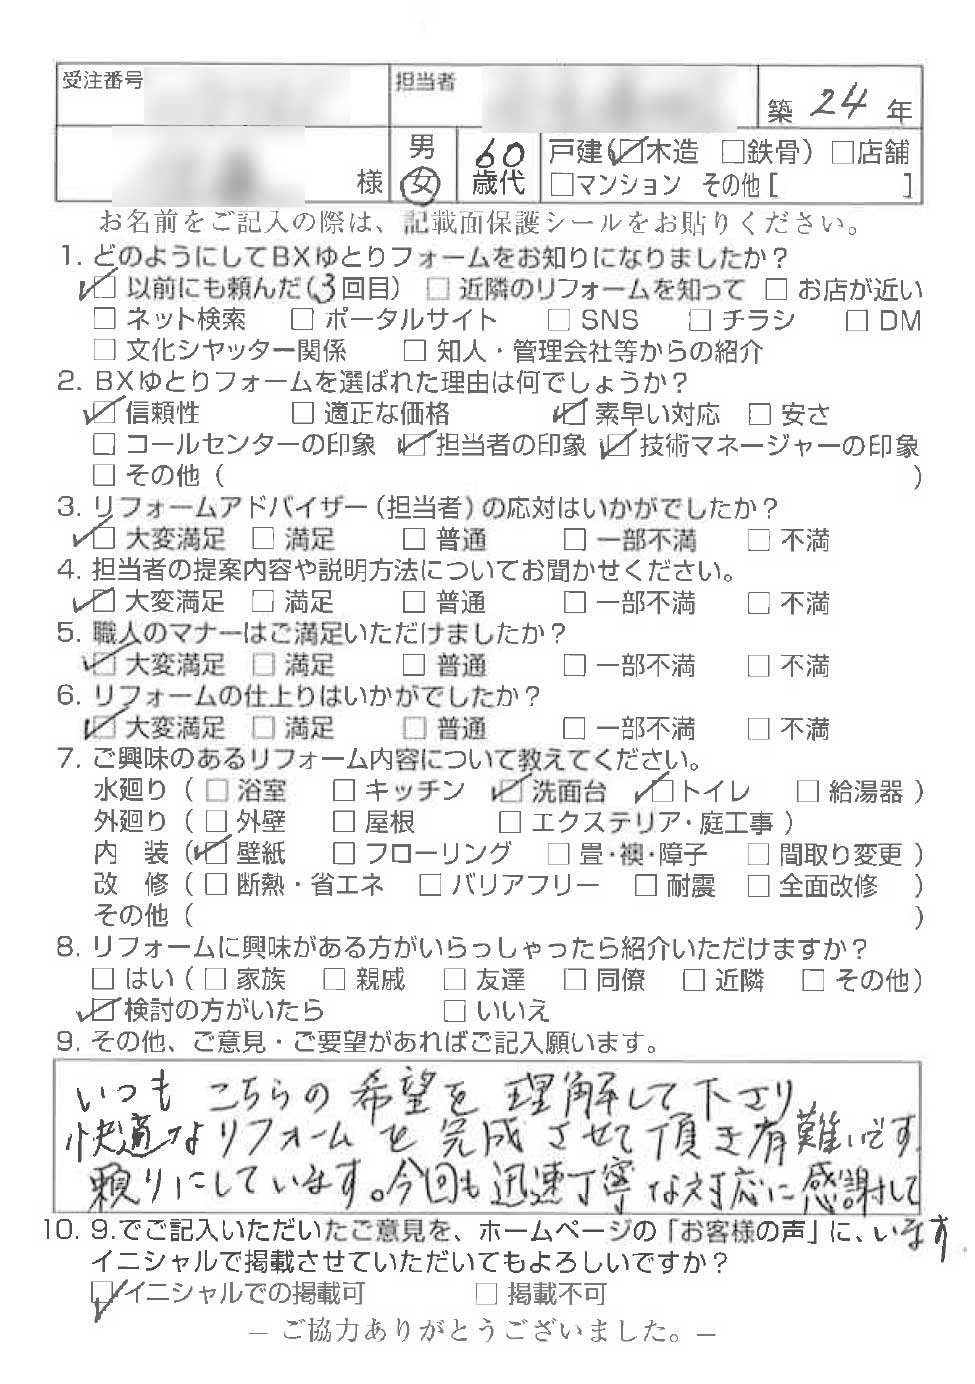 受注番号 担当者 築 24 年
様 男 女 60歳代 戸建(☑木造 □鉄骨) □店舗
□マンション その他[ ]
お名前をご記入の際は、記載面保護シールをお貼りください。
1. どのようにしてBXゆとりフォームをお知りになりましたか?
☑ 以前にも頼んだ(3回目) □ 近隣のリフォームを知って □ お店が近い
□ ネット検索 □ ポータルサイト □ SNS □ チラシ □ DM
□ 文化シヤッター関係 □ 知人・管理会社等からの紹介
2. BXゆとりフォームを選ばれた理由は何でしょうか?
☑ 信頼性 □ 適正な価格 ☑ 素早い対応 □ 安さ
□ コールセンターの印象 ☑ 担当者の印象 ☑ 技術マネージャーの印象
□ その他 ( )
3. リフォームアドバイザー(担当者)の応対はいかがでしたか?
☑ 大変満足 □ 満足 □ 普通 □ 一部不満 □ 不満
4. 担当者の提案内容や説明方法についてお聞かせください。
☑ 大変満足 □ 満足 □ 普通 □ 一部不満 □ 不満
5. 職人のマナーはご満足いただけましたか?
☑ 大変満足 □ 満足 □ 普通 □ 一部不満 □ 不満
6. リフォームの仕上りはいかがでしたか?
☑ 大変満足 □ 満足 □ 普通 □ 一部不満 □ 不満
7. ご興味のあるリフォーム内容について教えてください。
水廻り ( □ 浴室 □ キッチン ☑ 洗面台 ☑ トイレ □ 給湯器 )
外廻り ( □ 外壁 □ 屋根 □ エクステリア・庭工事 )
内 装 ( ☑ 壁紙 □ フローリング □ 畳・襖・障子 □ 間取り変更 )
改 修 ( □ 断熱・省エネ □ バリアフリー □ 耐震 □ 全面改修 )
その他 ( )
8. リフォームに興味がある方がいらっしゃったら紹介いただけますか?
□ はい ( □ 家族 □ 親戚 □ 友達 □ 同僚 □ 近隣 □ その他)
☑ 検討の方がいたら □ いいえ
9. その他、ご意見・ご要望があればご記入願います。
いつも こちらの希望を 理解して下さり
快適なリフォームを完成させて頂き有難いです。
頼りにしています。今回も迅速丁寧な対応に感謝して
います。
10. 9.でご記入いただいたご意見を、ホームページの「お客様の声」に、
イニシャルで掲載させていただいてもよろしいですか?
☑ イニシャルでの掲載可 □ 掲載不可
― ご協力ありがとうございました。―